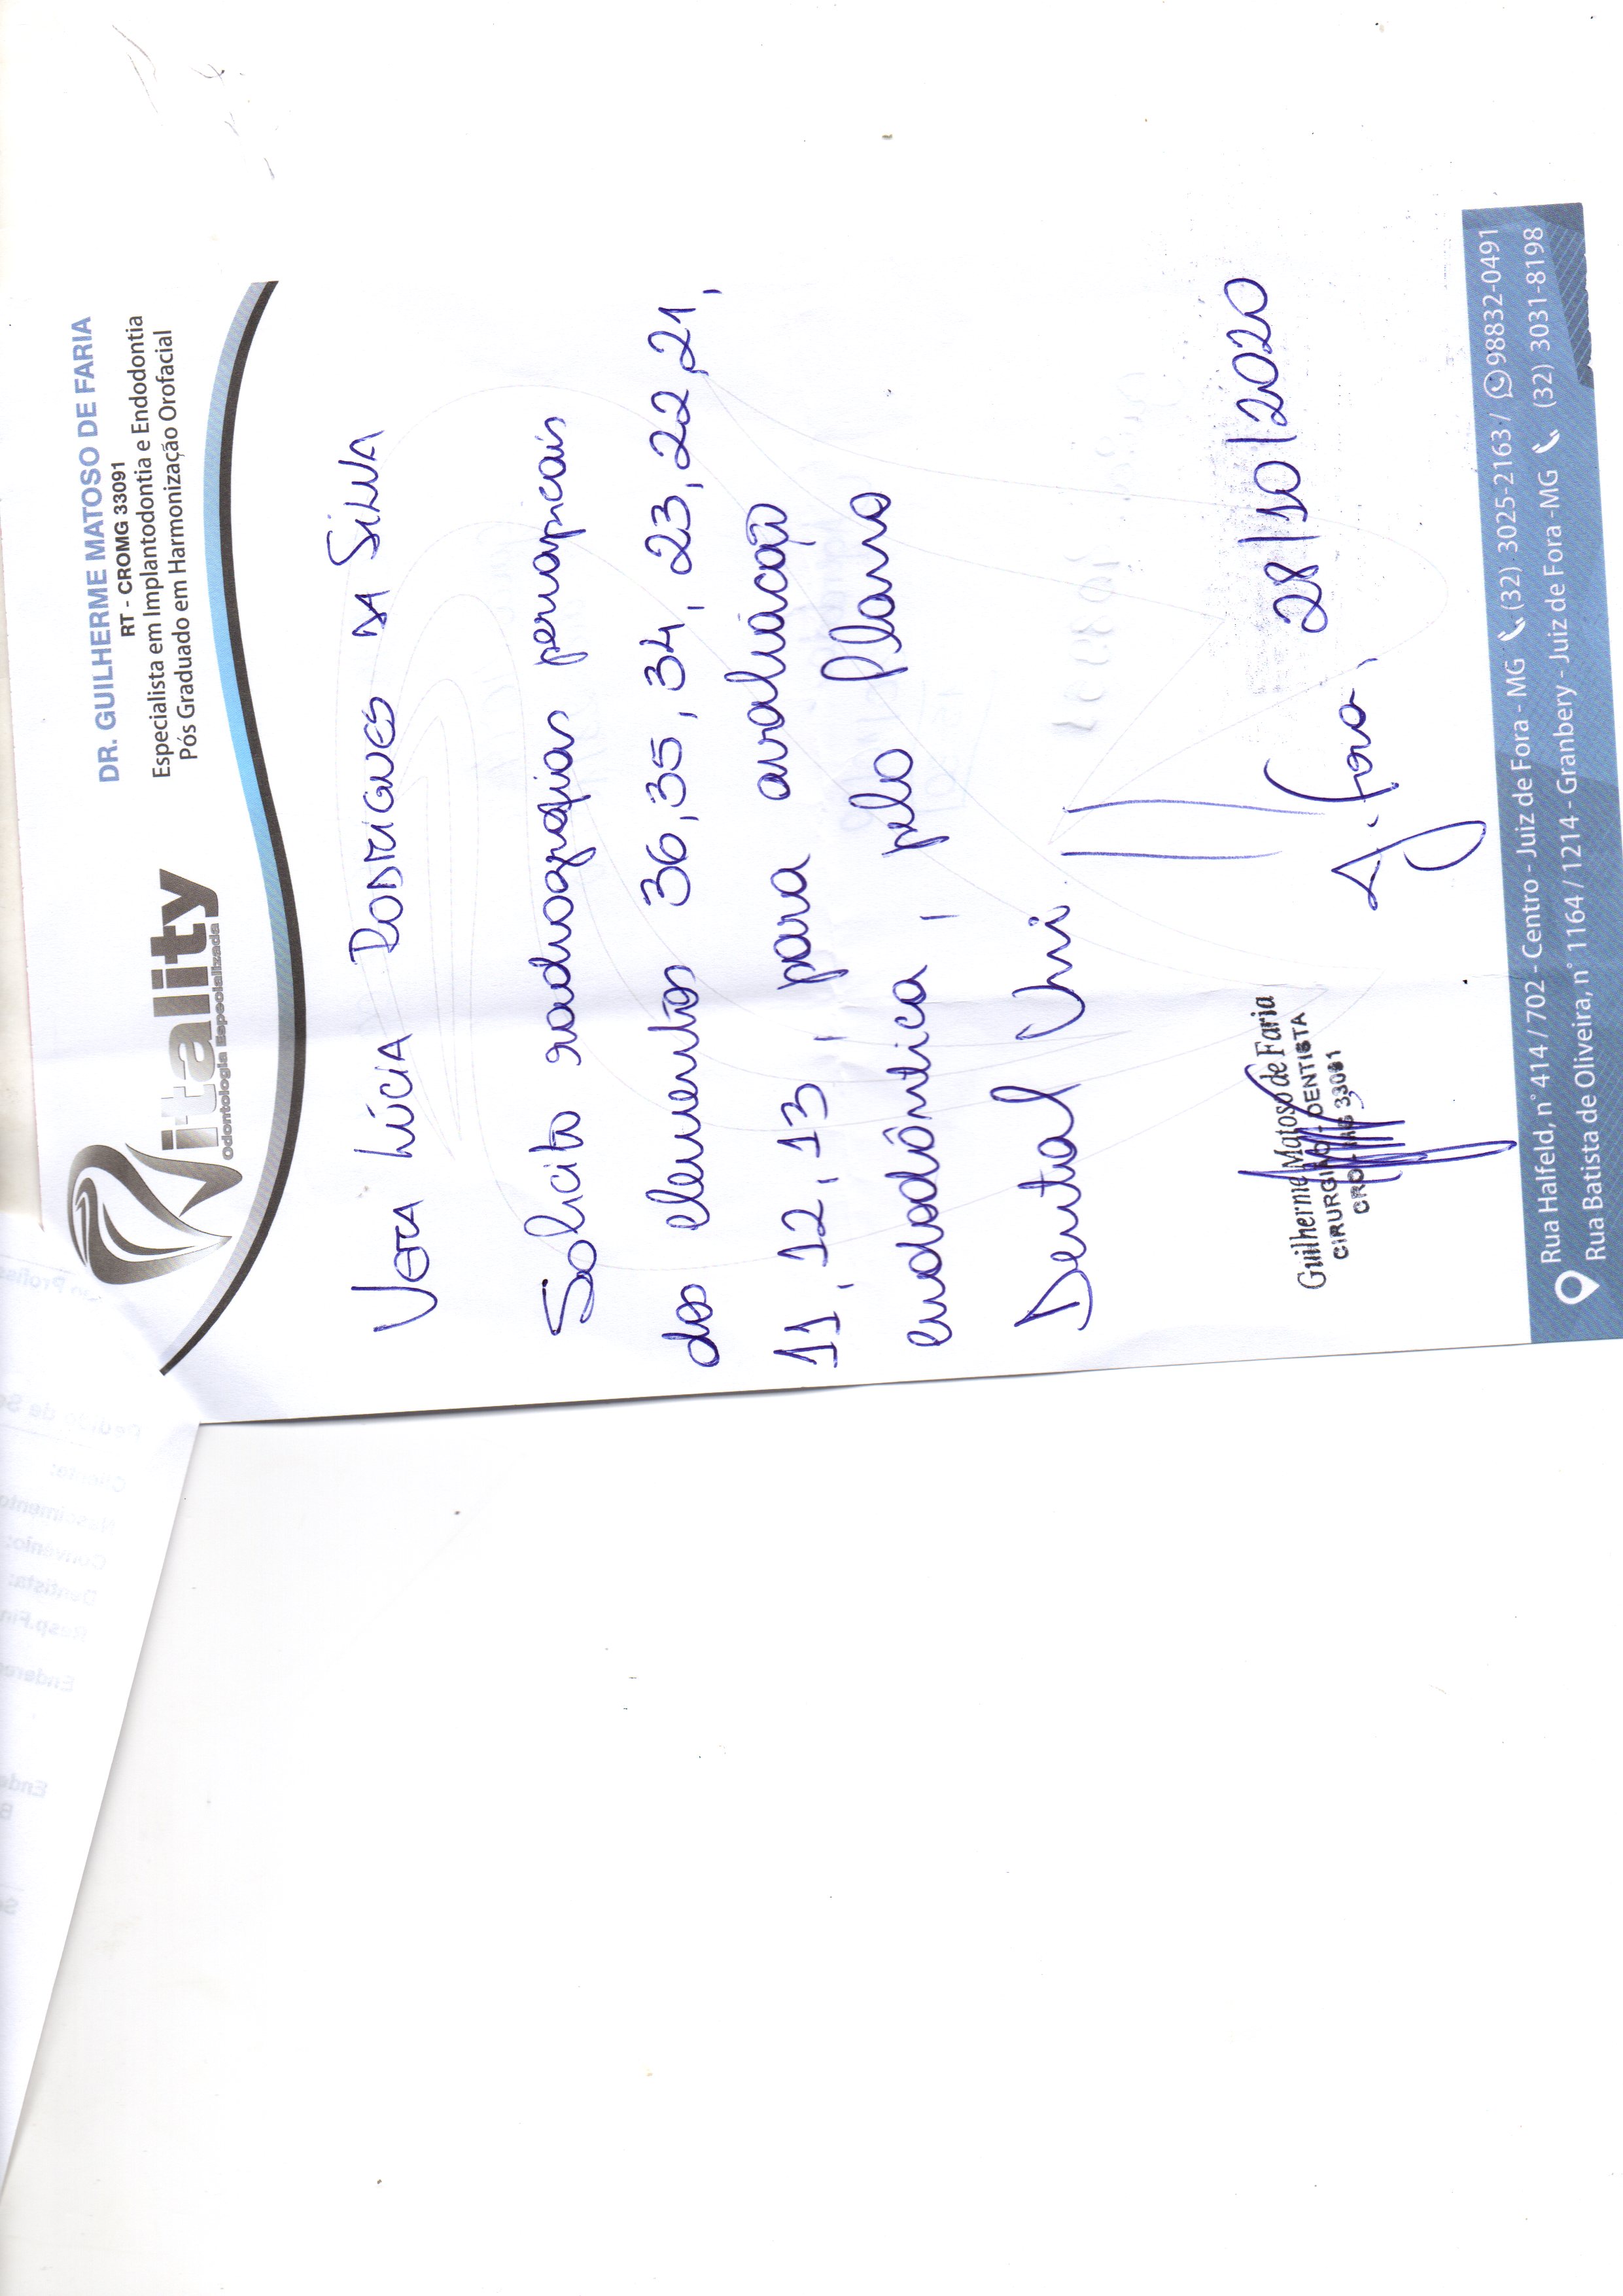 Vitality
Odontologia Especializada
DR. GUILHERME MATOSO DE FARIA
RT - CROMG 33091
Especialista em Implantodontia e Endodontia
Pós Graduado em Harmonização Orofacial
VERA LÚCIA RODRIGUES DA SILVA
Solicito radiografias periapicais
dos elementos 36, 35, 34, 23, 22, 21,
11, 12, 13, para avaliação
endodôntica, pelo Plano
Dental Uni.
J. Fora, 28/10/2020
Guilherme Matoso de Faria
CIRURGIÃO-DENTISTA
CRO - MG 33091
Rua Halfeld, n° 414 / 702 - Centro - Juiz de Fora - MG (32) 3025-2163 / 98832-0491
Rua Batista de Oliveira, n° 1164 / 1214 - Granbery - Juiz de Fora -MG (32) 3031-8198
Pedido de
Cliente:
Nascimento
Convênio:
Dentista:
Resp.Fin